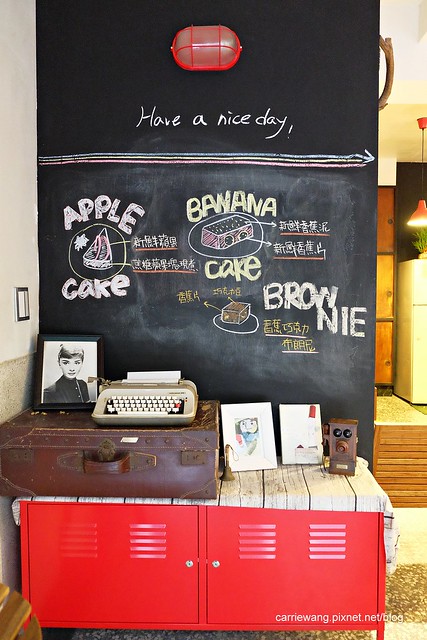 Have a nice day,
APPLE
cake
新鮮蘋果
BANANA
cake
新鮮香蕉泥
新鮮香蕉片
香蕉片
巧克力豆
BROWNIE
香蕉巧克力
布朗尼
carriewang.pixnet.net/blog